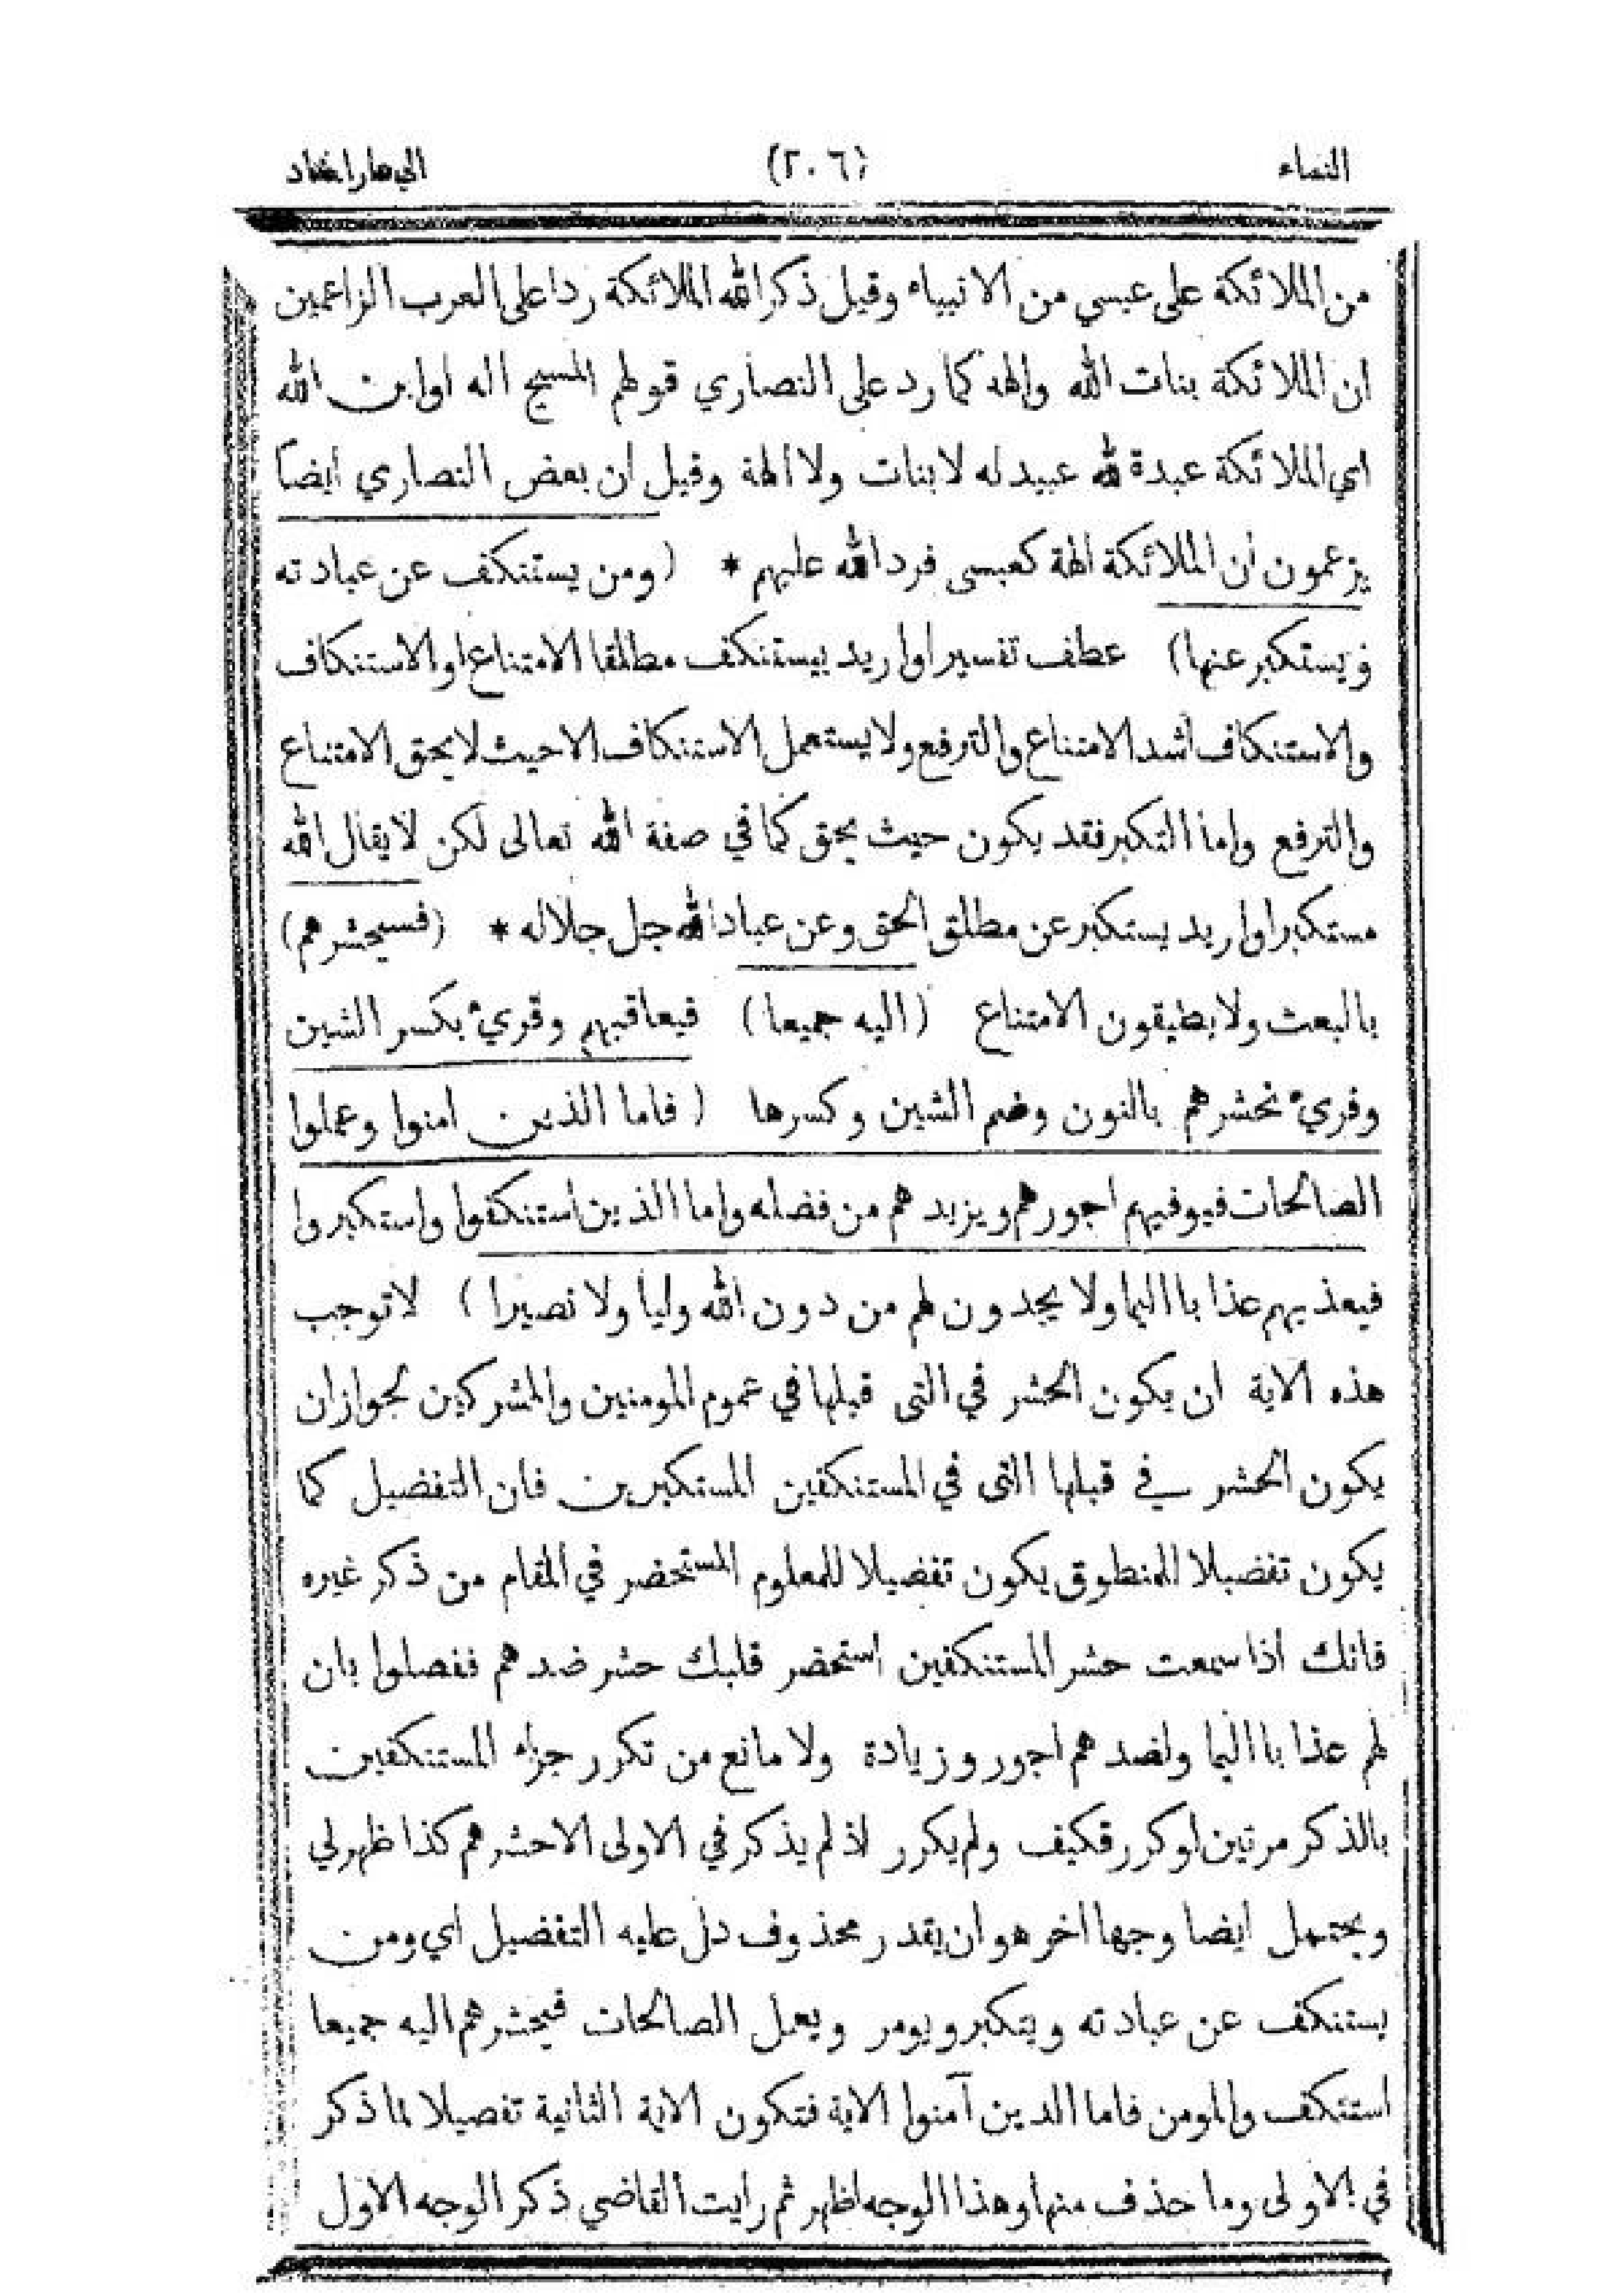 النساء (٢٠٦)
من الملائكة على عيسي من الانبياء وقيل ذكر الله الملائكة ردا على العرب الزاعمين
ان الملائكة بنات الله والهة كما رد على النصاري قولهم المسيح اله او ابن الله
اي الملائكة عبدة لله عبيد له لا بنات ولا الهة وقيل ان بعض النصاري ايضا
يزعمون ان الملائكة الهة كعيسى فرد الله عليهم * (ومن يستنكف عن عبادته
ويستكبر عنها) عطف تفسير او اريد بيستنكف مطلقا الامتناع او الاستنكاف
والاستنكاف اشد الامتناع والترفع ولا يستعمل الاستنكاف الا حيث لا يحق الامتناع
والترفع واما التكبر فقد يكون حيث يحق كما في صفة الله تعالى لكن لا يقال الله
مستكبر او اريد يستكبر عن مطلق الحق وعن عباد الله جل جلاله * (فسيحشرهم)
بالبعث ولا يطيقون الامتناع (اليه جميعا) فيعاقبهم وقريء بكسر الشين
وقريء نحشرهم بالنون وضم الشين وكسرها (فاما الذين امنوا وعملوا
الصالحات فيوفيهم اجورهم ويزيدهم من فضله واما الذين استنكفوا واستكبروا
فيعذبهم عذابا اليما ولا يجدون لهم من دون الله وليا ولا نصيرا) لا توجب
هذه الاية ان يكون الحشر في التى قبلها في عموم المومنين والمشركين لجواز ان
يكون الحشر في قبلها التى في المستنكفين المستكبرين فان التفضيل كما
يكون تفضيلا للمنطوق يكون تفضيلا للمعلوم المستحضر في المقام من ذكر غيره
فانك اذا سمعت حشر المستنكفين استحضر قلبك حشر ضدهم ففصلوا بان
لهم عذابا اليما ولضدهم اجور وزيادة ولا مانع من تكرر جزاء المستنكفين
بالذكر مرتين لو كرر فكيف ولم يكرر اذ لم يذكر في الاولى الا حشرهم كذا ظهر لي
ويحتمل ايضا وجها اخر هو ان يقدر محذوف دل عليه التفضيل اي ومن
يستنكف عن عبادته ويتكبر ويومر ويعمل الصالحات فيحشرهم اليه جميعا
استنكف والمومن فاما الدين آمنوا الاية فتكون الاية الثانية تفصيلا لما ذكر
في الاولى وما حذف منها وهذا الوجه اظهر ثم رايت القاضي ذكر الوجه الاول